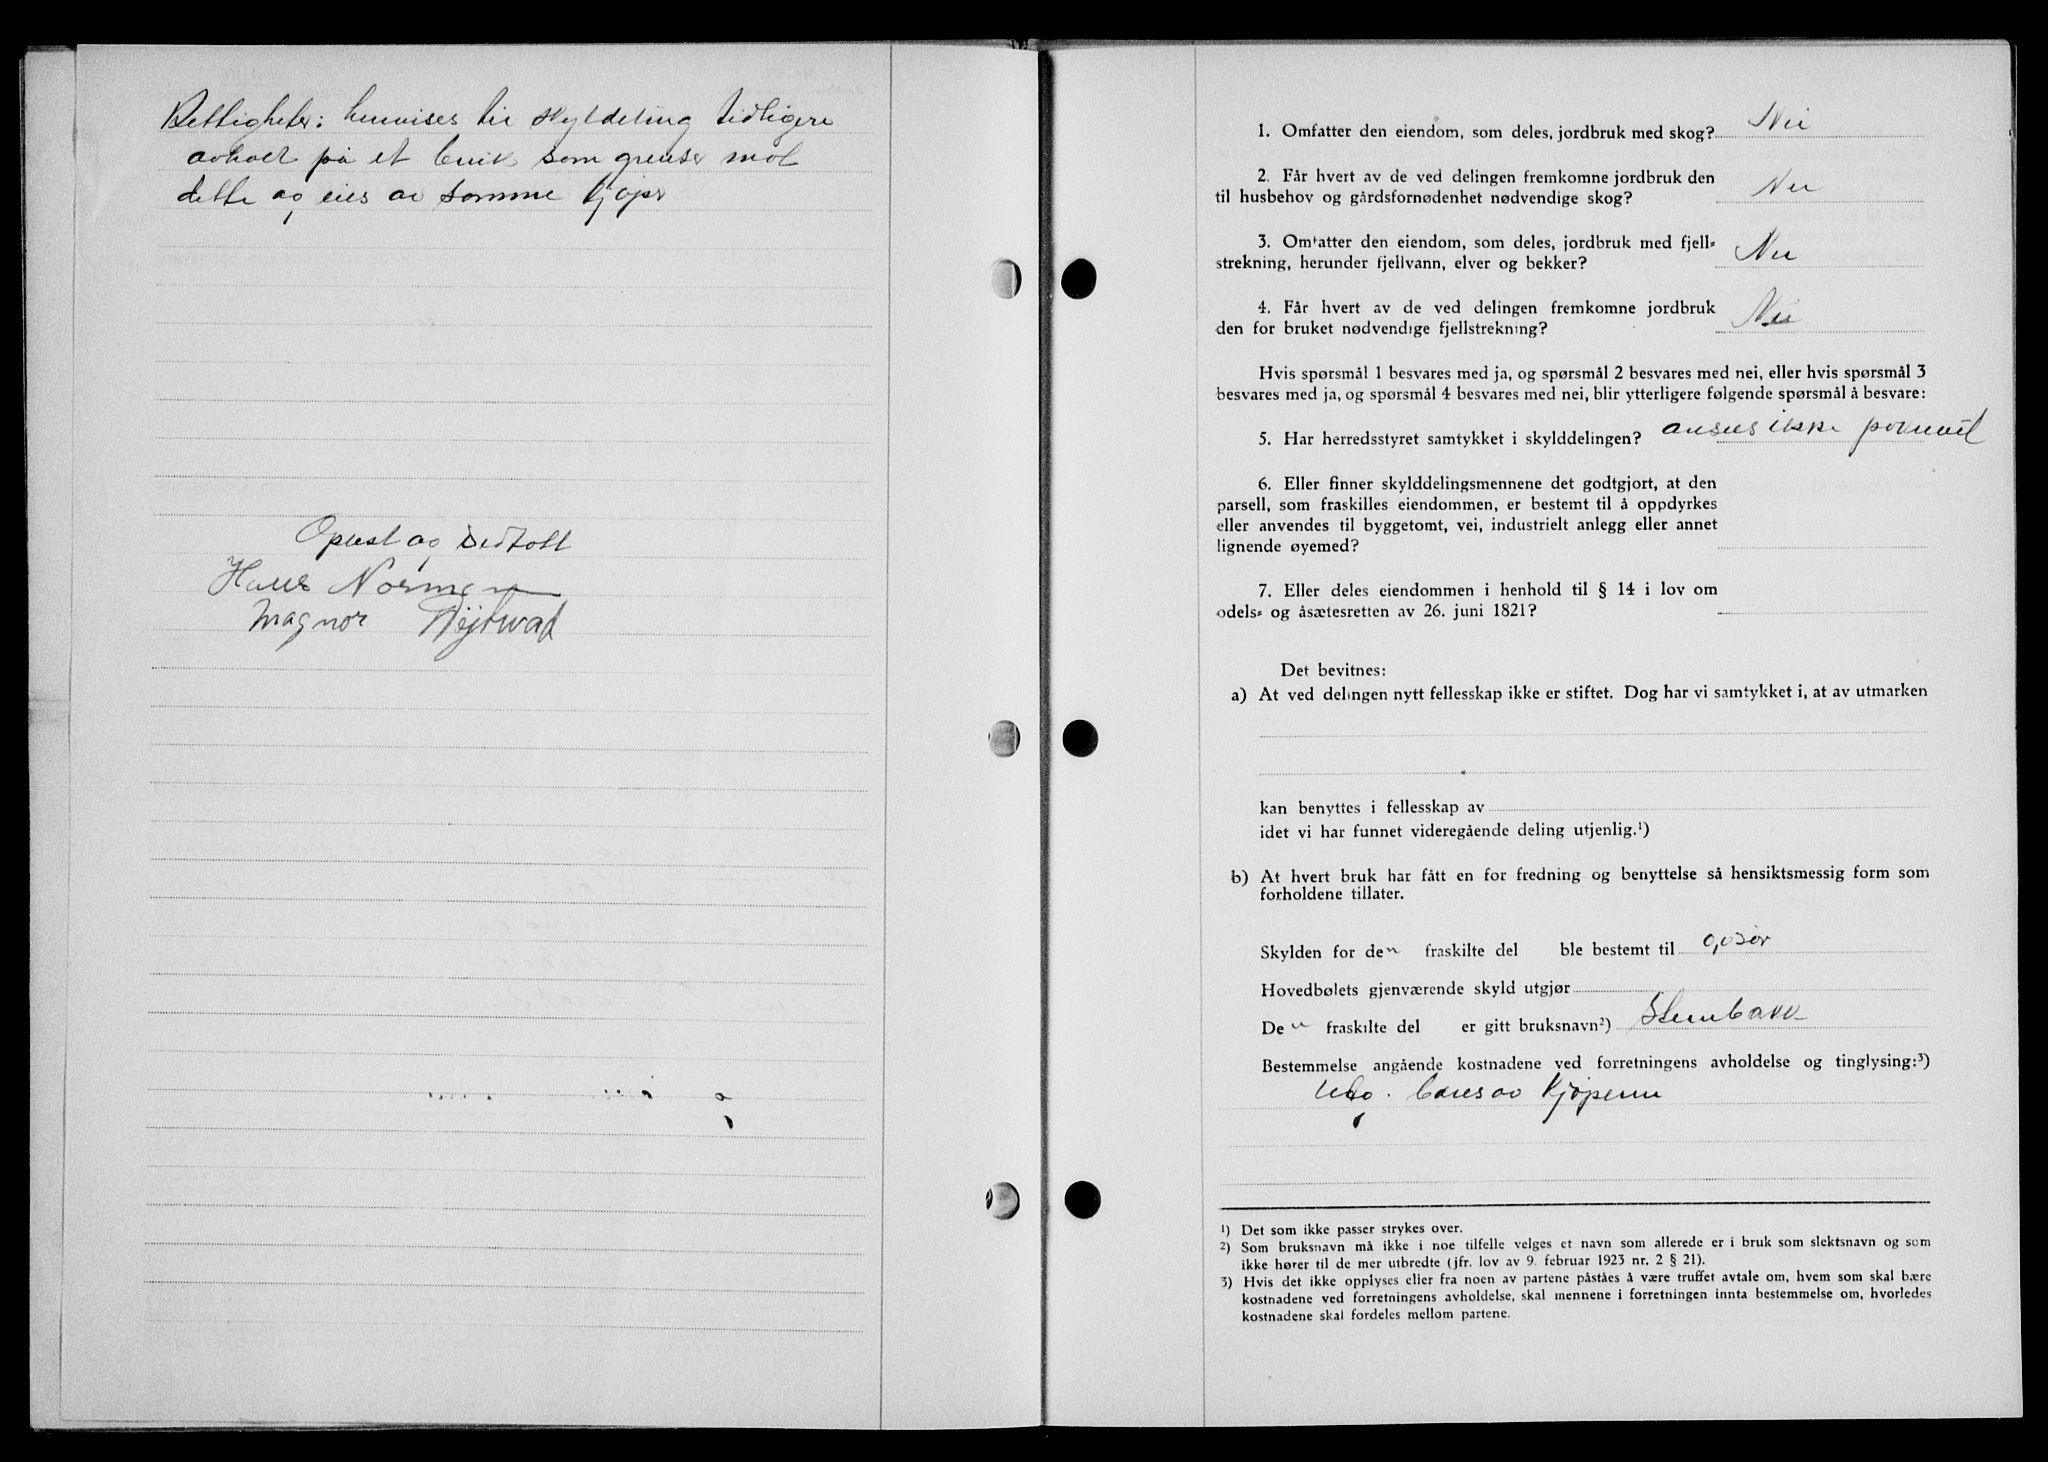 Rettigheter: henvises til skyldeling tidligere
avholt på et bruk som grenser mot
dette og eies av samme kjøper
Oplest og vedtatt
Hans Norman
Magnor
1. Omfatter den eiendom, som deles, jordbruk med skog? Nei
2. Får hvert av de ved delingen fremkomne jordbruk den
til husbehov og gårdsfornødenhet nødvendige skog? Nei
3. Omfatter den eiendom, som deles, jordbruk med fjell-
strekning, herunder fjellvann, elver og bekker? Nei
4. Får hvert av de ved delingen fremkomne jordbruk
den for bruket nødvendige fjellstrekning? Nei
Hvis spørsmål 1 besvares med ja, og spørsmål 2 besvares med nei, eller hvis spørsmål 3
besvares med ja, og spørsmål 4 besvares med nei, blir ytterligere følgende spørsmål å besvare:
5. Har herredsstyret samtykket i skylddelingen? ansees ikke
6. Eller finner skylddelingsmennene det godtgjort, at den
parsell, som fraskilles eiendommen, er bestemt til å oppdyrkes
eller anvendes til byggetomt, vei, industrielt anlegg eller annet
lignende øyemed?
7. Eller deles eiendommen i henhold til § 14 i lov om
odels- og åsætesretten av 26. juni 1821?
Det bevitnes:
a) At ved delingen nytt fellesskap ikke er stiftet. Dog har vi samtykket i, at av utmarken
kan benyttes i fellesskap av
idet vi har funnet videregående deling utjenlig.¹)
b) At hvert bruk har fått en for fredning og benyttelse så hensiktsmessig form som
forholdene tillater.
Skylden for den fraskilte del ble bestemt til 0,03 ør
Hovedbølets gjenværende skyld utgjør
Den fraskilte del er gitt bruksnavn²) Stenbakk
Bestemmelse angående kostnadene ved forretningens avholdelse og tinglysing:³)
Utg. bæres av kjøperen
¹) Det som ikke passer strykes over.
²) Som bruksnavn må ikke i noe tilfelle velges et navn som allerede er i bruk som slektsnavn og som
ikke hører til de mer utbredte (jfr. lov av 9. februar 1923 nr. 2 § 21).
³) Hvis det ikke opplyses eller fra noen av partene påståes å være truffet avtale om, hvem som skal bære
kostnadene ved forretningens avholdelse, skal mennene i forretningen innta bestemmelse om, hvorledes
kostnadene skal fordeles mellom partene.